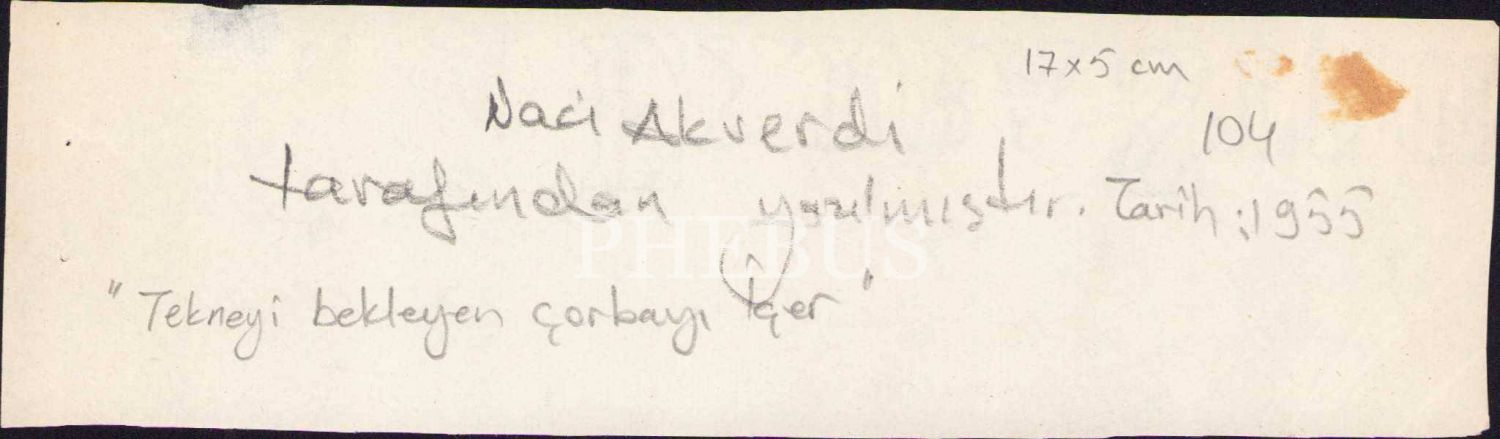 17x5 cm
Naci Akverdi
104
tarafından yazılmıştır. Tarih: 1955
PHEBUS
"Tekneyi bekleyen çorbayı içer"